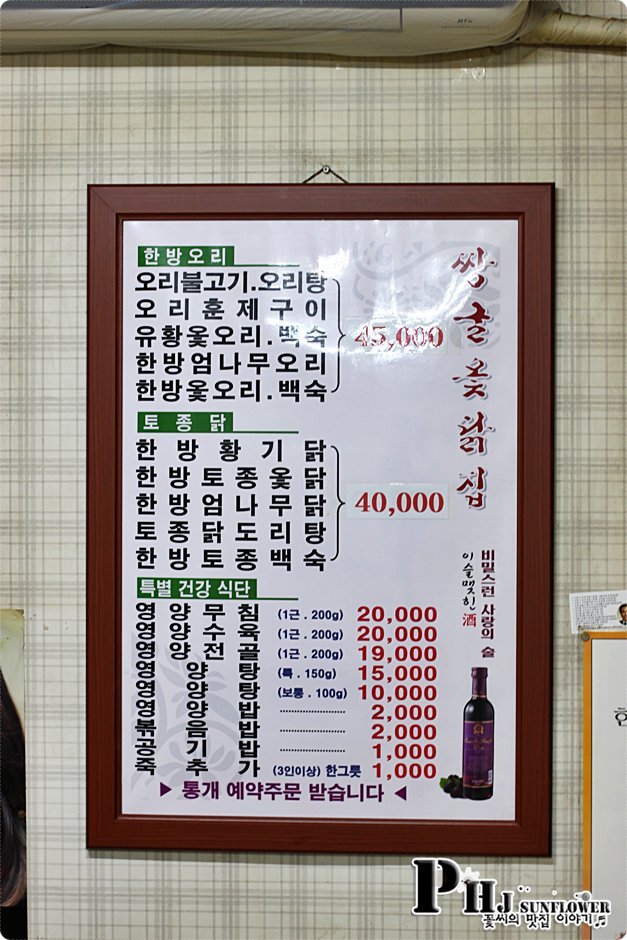 한방오리
오리불고기.오리탕
오리훈제구이
유황옻오리.백숙
한방엄나무오리
한방옻오리.백숙
45,000
토종닭
한방황기닭
한방토종옻닭
한방엄나무닭
토종닭도리탕
한방토종백숙
40,000
특별 건강 식단
영양무침 (1근.200g) 20,000
영양수육 (1근.200g) 20,000
영양전골 (1근.200g) 19,000
영양탕 (특.150g) 15,000
영양탕 (보통.100g) 10,000
영양밥 2,000
볶음밥 2,000
공기밥 1,000
죽추가 (3인이상) 한그릇 1,000
▶ 통개 예약주문 받습니다 ◀
쌍굴옻닭집
비밀스런 사랑의 술
이슬맺힌 酒
PHJ SUNFLOWER
꽃씨의 맛집 이야기♬